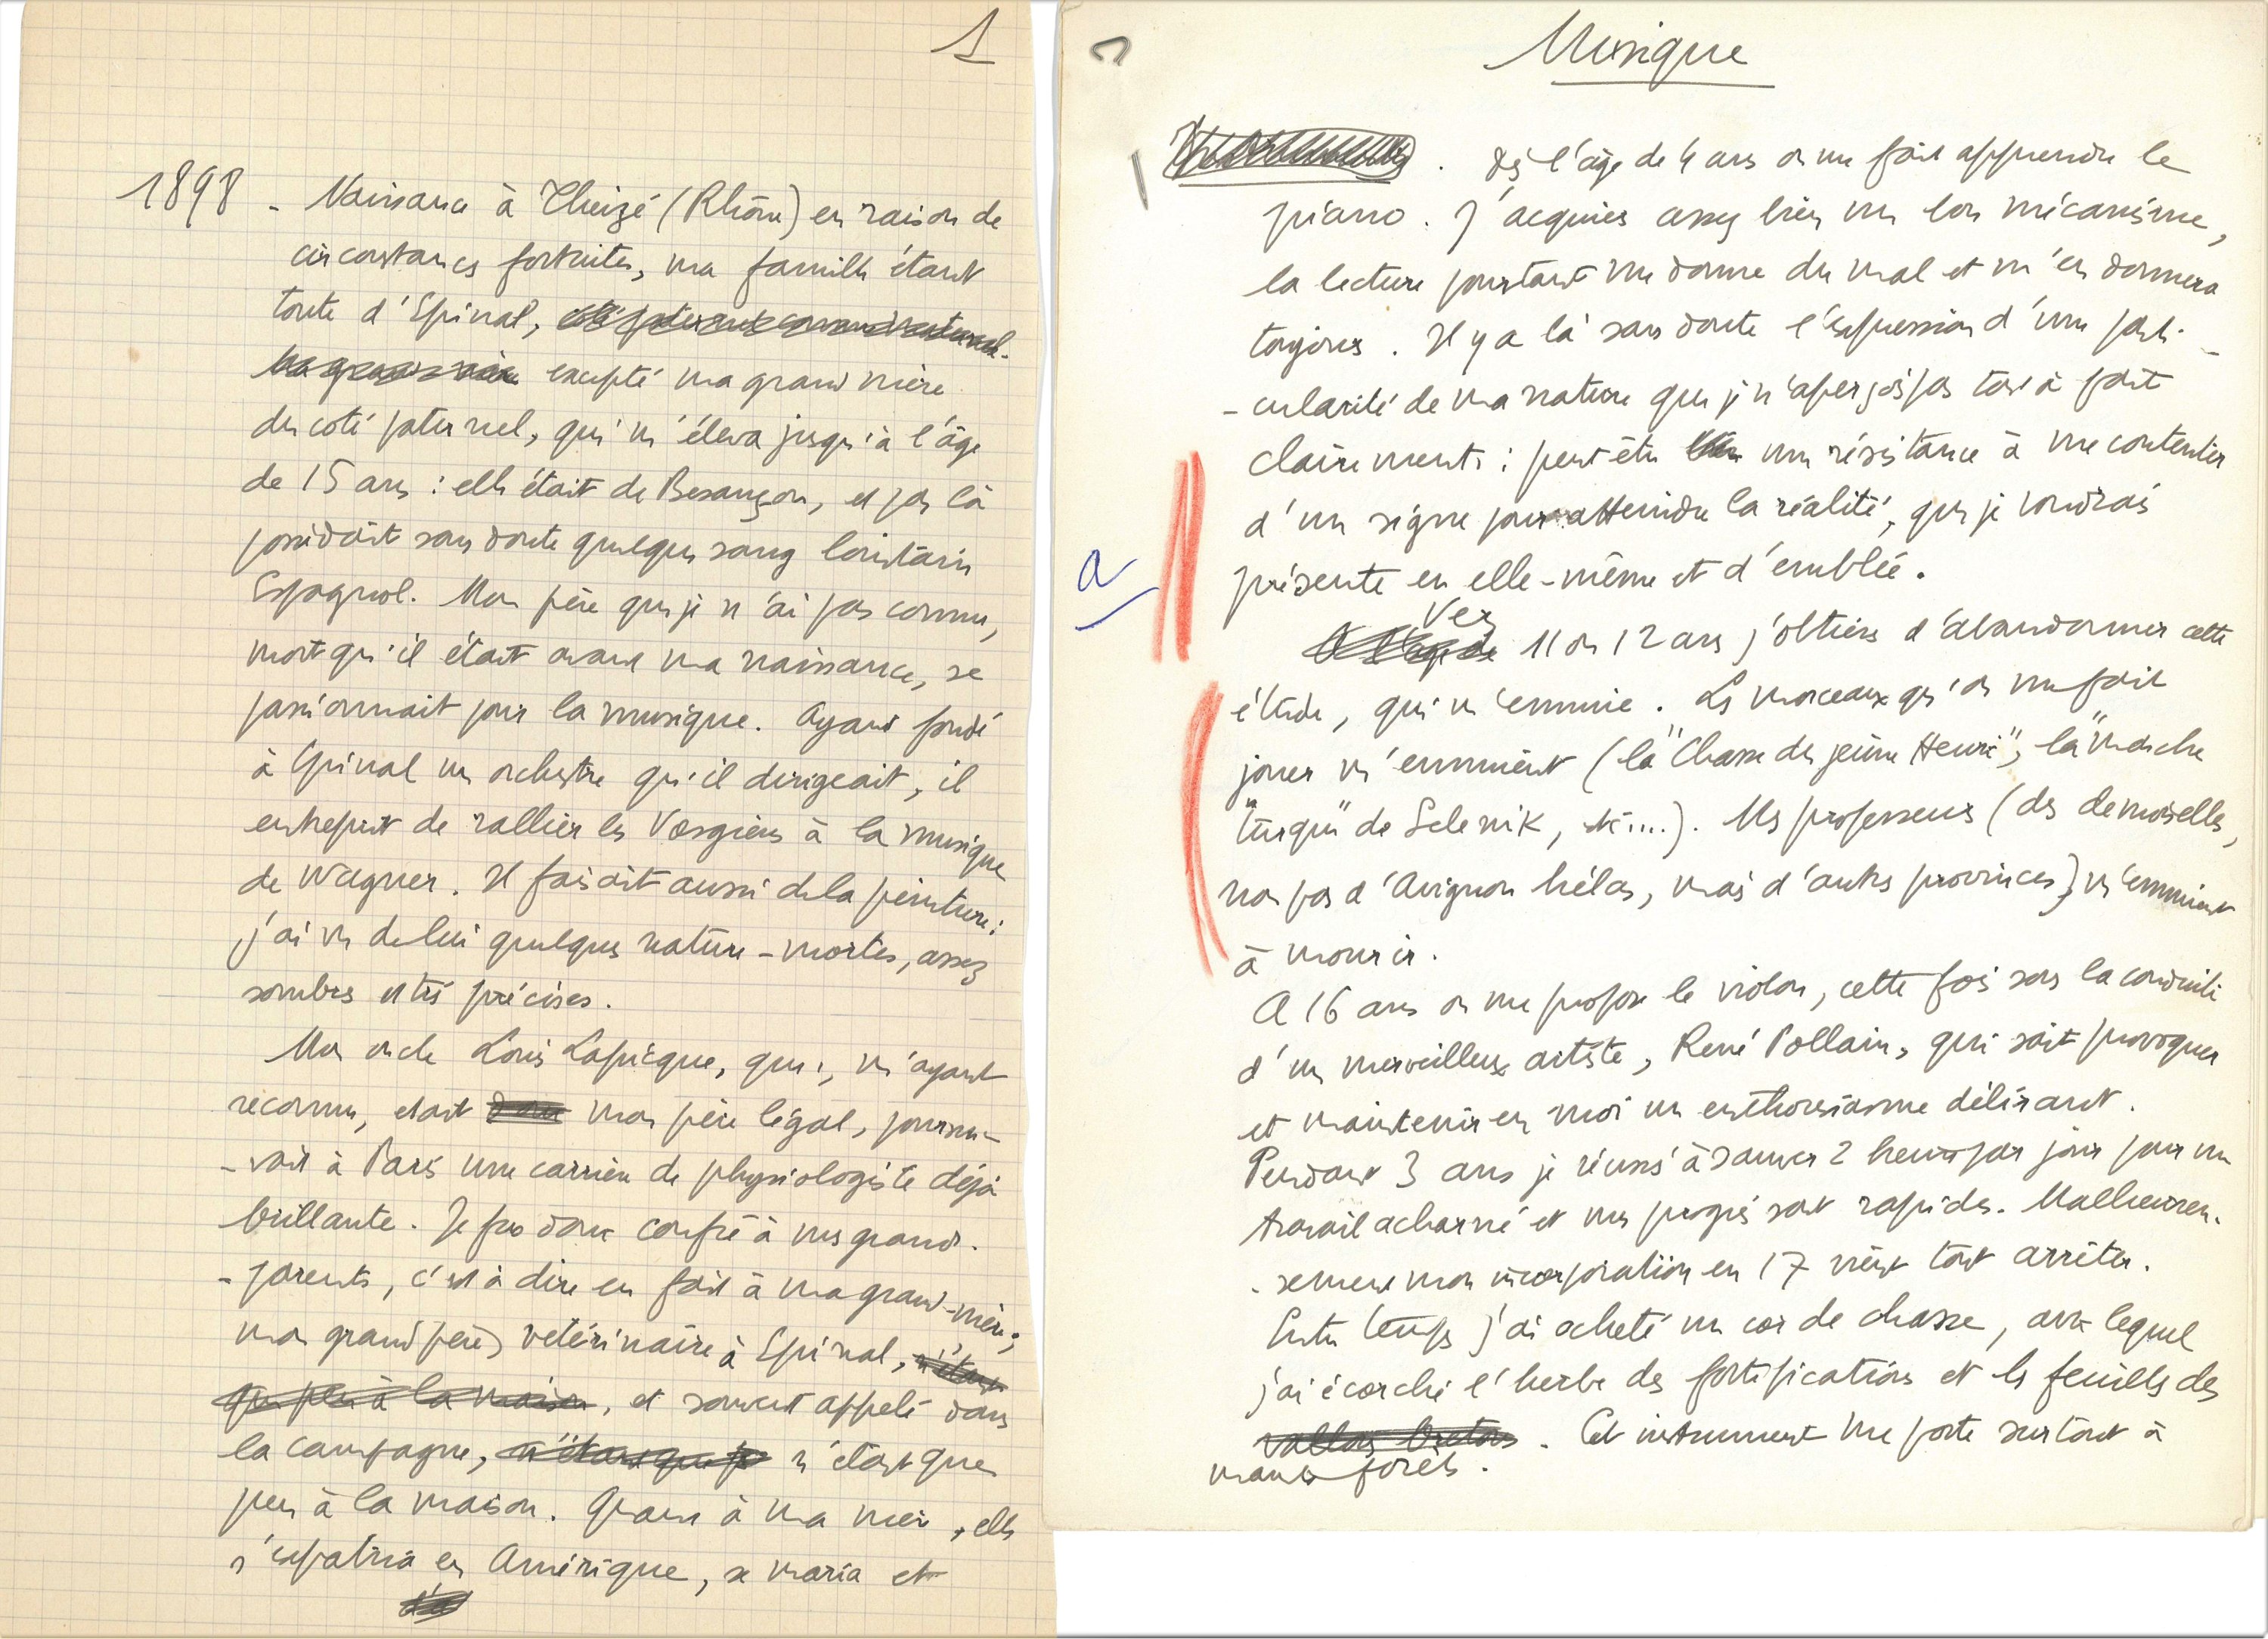 1
1898 - Naissance à Theizé (Rhône) en raison de
circonstances fortuites, ma famille étant
toute d'Epinal,
excepté ma grand mère
du coté paternel, qui m'éleva jusqu'à l'âge
de 15 ans : elle était de Besançon, et par là
possédait sans doute quelque sang lointain
Espagnol. Mon père que je n'ai pas connu,
mort qu'il était avant ma naissance, se
passionnait pour la musique. Ayant fondé
à Epinal un orchestre qu'il dirigeait, il
entreprit de rallier les Vosgiens à la musique
de Wagner. Il faisait aussi de la peinture :
j'ai vu de lui quelques nature-mortes, assez
sombres et très précises.
Mon oncle Louis Lapicque, qui, m'ayant
reconnu, etait donc mon père légal, poursui-
-vait à Paris une carrière de physiologiste déjà
brillante. Je fus donc confié à mes grands-
-parents, c'est à dire en fait à ma grand-mère ;
mon grand père, vetérinaire à Epinal, n'étant
que peu à la maison, et souvent appelé dans
la campagne, n'étant que p n'étant que
peu à la maison. Quant à ma mère, elle
s'expatria en Amérique, se maria et
Musique
. Dès l'âge de 4 ans on me fait apprendre le
piano. J'acquiers assez bien un bon mécanisme,
la lecture pourtant me donne du mal et m'en donnera
toujours. Il y a là sans doute l'expression d'une parti-
-cularité de ma nature que je n'aperçois pas tout à fait
clairement : peut être une résistance à me contenter
d'un signe pour atteindre la réalité, que je voudrais
présente en elle-même et d'emblée.
Vers
A l'âge de 11 ou 12 ans j'obtiens d'abandonner cette
étude, qui m'ennuie. Les morceaux qu'on me fait
jouer m'ennuient (la "Chasse du jeune Henri", la "Marche
turque" de Selenik, etc....). Mes professeurs (des demoiselles,
non pas d'Avignon hélas, mais d'autres provinces) m'ennuient
à mourir.
A 16 ans on me propose le violon, cette fois sous la conduite
d'un merveilleux artiste, René Pollain, qui sait provoquer
et maintenir en moi un enthousiasme délirant.
Pendant 3 ans je réussis à sauver 2 heures par jour pour un
travail acharné et mes progrès sont rapides. Malheureu-
-sement mon incorporation en 17 vient tout arrêter.
Entre temps j'ai acheté un cor de chasse, avec lequel
j'ai écorché l'herbe des fortifications et les feuilles des
vallons bretons. Cet instrument me porte surtout à
maintes forêts.
a